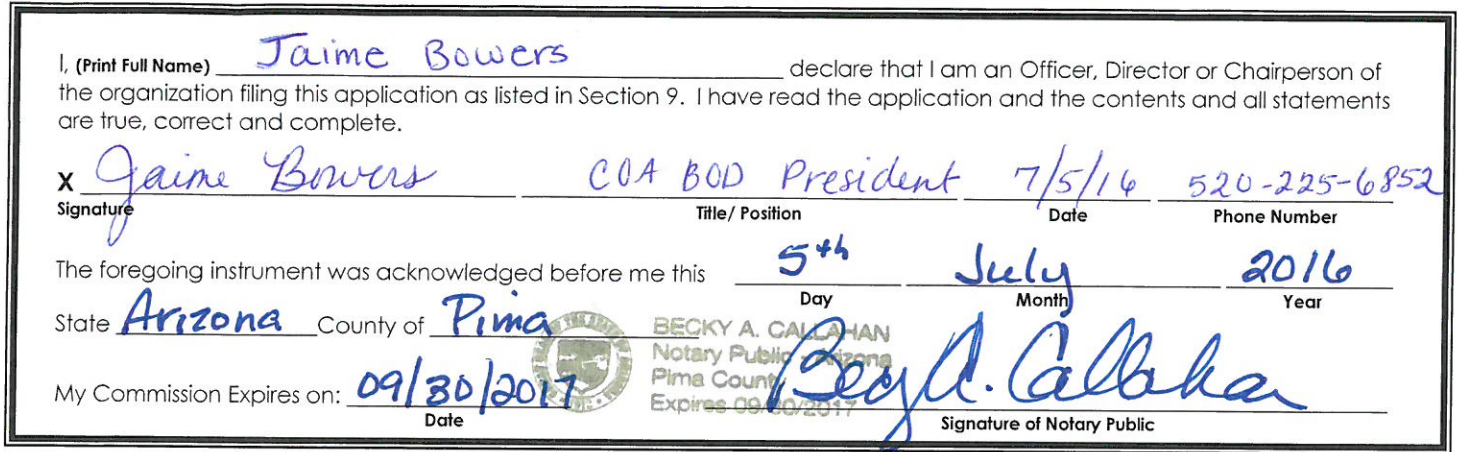 I, (Print Full Name) Jaime Bowers declare that I am an Officer, Director or Chairperson of
the organization filing this application as listed in Section 9. I have read the application and the contents and all statements
are true, correct and complete.
X Jaime Bowers COA BOD President 7/5/16 520-225-6852
Signature Title/ Position Date Phone Number
The foregoing instrument was acknowledged before me this 5th July 2016
Day Month Year
State Arizona County of Pima
BECKY A. CALLAHAN
Notary Public - Arizona
Pima County
Expires 09/30/2017
My Commission Expires on: 09/30/2017 Becky A. Callahan
Date Signature of Notary Public